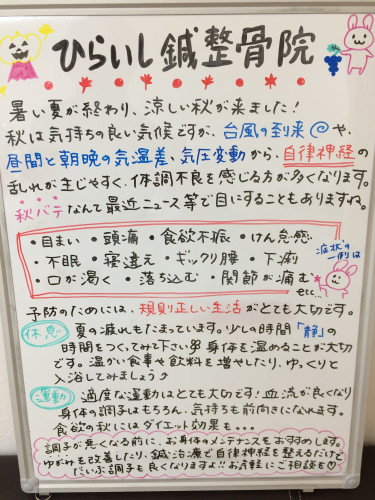 ひらいし鍼整骨院
暑い夏が終わり、涼しい秋が来ました！
秋は気持ちの良い気候ですが、台風の到来や、
昼間と朝晩の気温差、気圧変動から、自律神経の
乱れが生じやすく、体調不良を感じる方が多くなります。
秋バテなんて最近ニュース等で目にすることもありますね。
・目まい ・頭痛 ・食欲不振 ・けん怠感
・不眠 ・寝違え ・ギックリ腰 ・下痢
・口が渇く ・落ち込む ・関節が痛む
etc...
症状の
一例は
予防のためには、規則正しい生活がとても大切です。
休息 夏の疲れもたまっています。少しの時間「静」の
時間をつくってみて下さい 身体を温めることが大切
です。温かい食事や飲料を増やしたり、ゆっくりと
入浴してみましょう♪
運動 適度な運動はとても大切です！血流が良くなり
身体の調子はもちろん、気持ちも前向きになれます。
食欲の秋にはダイエット効果も...
調子が悪くなる前に、お身体のメンテナンスをおすすめします。
ゆがみを改善したり、鍼治療で自律神経を整えるだけで
だいぶ調子も良くなりますよ!!お気軽にご相談を♡